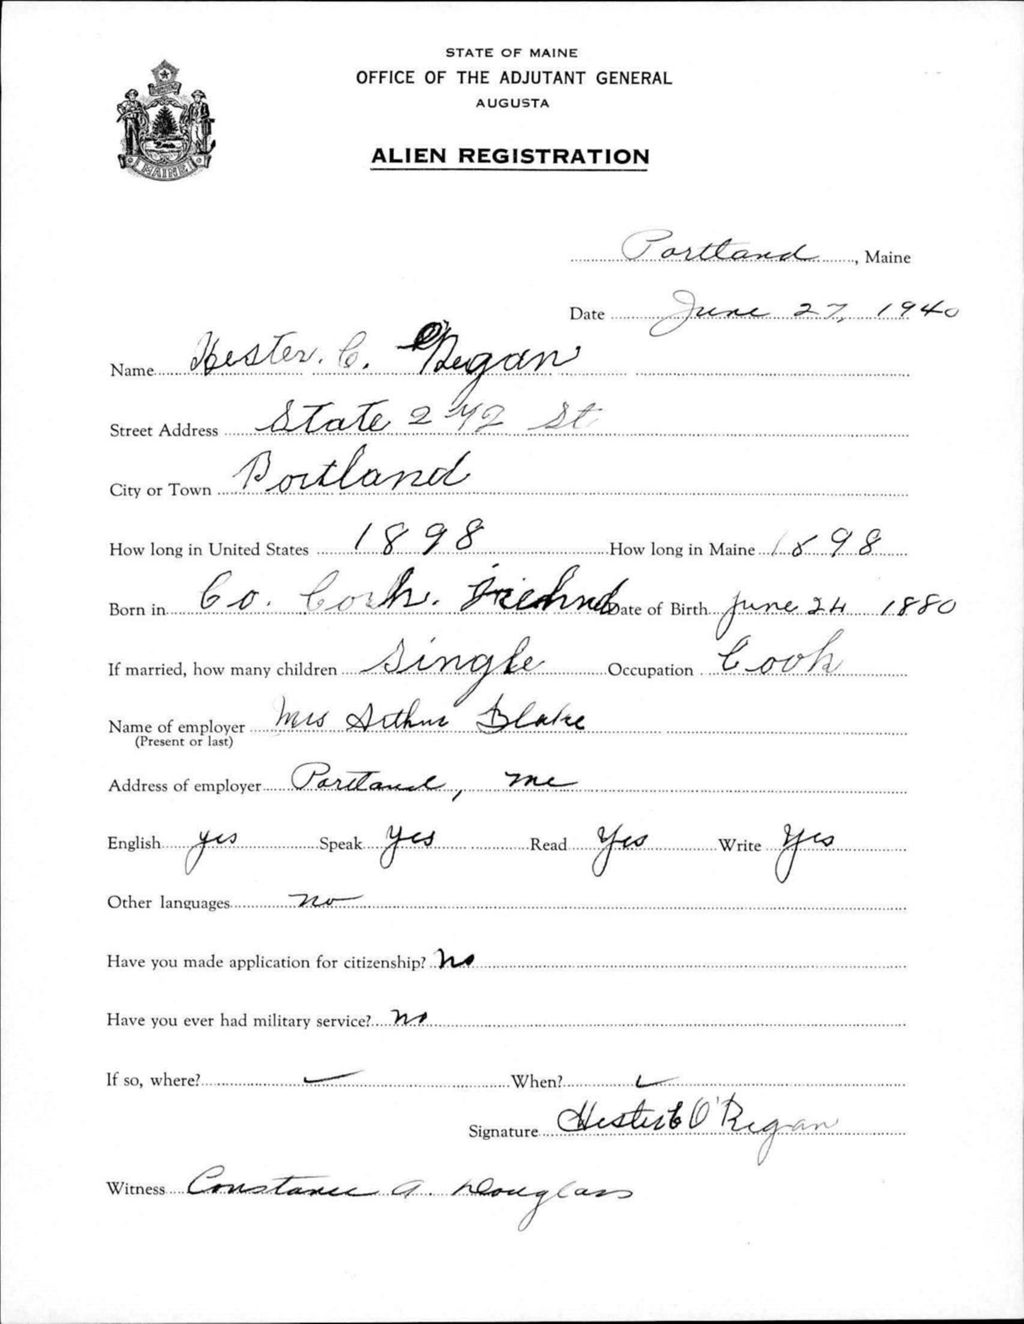 STATE OF MAINE
OFFICE OF THE ADJUTANT GENERAL
AUGUSTA
ALIEN REGISTRATION
MAINE
Portland, Maine
Date June 27, 1940
Name Hester. C. O'Regan
Street Address State 242 St
City or Town Portland
How long in United States 1898 How long in Maine 1898
Born in Co. Cork. Ireland Date of Birth June 24 1880
If married, how many children Single Occupation Cook
Name of employer Mrs Arthur Blake
(Present or last)
Address of employer Portland, Me
English yes Speak Yes Read Yes Write Yes
Other languages no
Have you made application for citizenship? No
Have you ever had military service? No
If so, where? When?
Signature Hester C O'Regan
Witness Constance A. Douglass